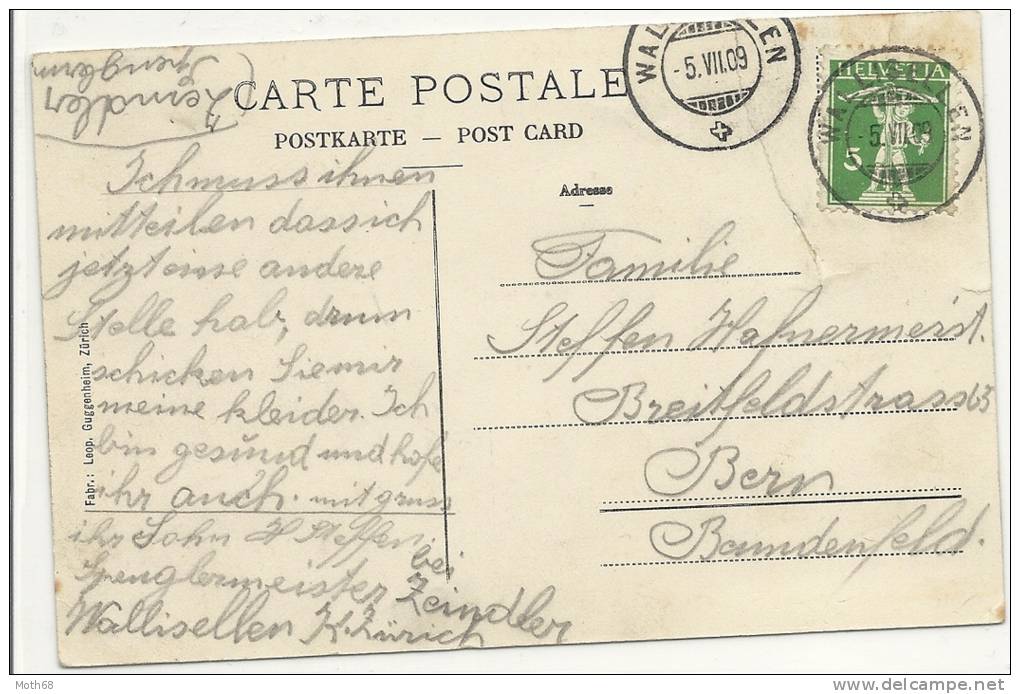 Zeindler
Spengler
CARTE POSTALE
POSTKARTE – POST CARD
WALLISELLEN
-5.VII.09
HELVETIA
5
WALLISELLEN
-5.VII.09
Adresse
Ich muss ihnen
mitteilen dass ich
jetzt eine andere
Stelle hab, drum
schicken Sie mir
meine kleider. Ich
bin gesund und hofe
ihr auch. mit gruss
ihr Sohn H Steffen.
bei
Spenglermeister Zeindler
Wallisellen K. Zürich
Familie
Steffen Hafnermeist.
Breitfeldstrass 63
Bern
Baundenfeld.
Fabr.: Leop. Guggenheim, Zürich
Moth68
delcampe.net